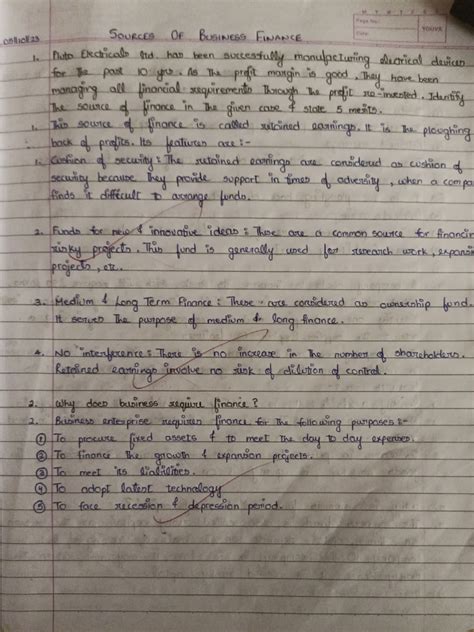 SOURCES OF BUSINESS FINANCE
Page No.:
Date:
YOUVA
1. Pluto Electricals Ltd. has been successfully manufacturing electrical devices
for the past 10 yrs. As the profit margin is good. They have been
managing all financial requirements through the profit re-invested. Identify
the source of finance in the given case & state 5 merits.
1. This source of finance is called retained earnings. It is the ploughing
back of profits. Its features are :-
1. Cushion of security : The retained earnings are considered as cushion of
security because they provide support in times of adversity, when a compa
finds it difficult to arrange funds.
2. Funds for new & innovative ideas : These are a common source for financin
risky projects. This fund is generally used for research work, expansion
projects, etc.
3. Medium & Long Term Finance : These are considered as ownership fund.
It serves the purpose of medium & long finance.
4. No interference : There is no increase in the number of shareholders.
Retained earnings involve no risk of dilution of control.
2. Why does business require finance ?
2. Business enterprise requires finance for the following purposes :-
① To procure fixed assets & to meet the day to day expenses.
② To finance the growth & expansion projects.
③ To meet its liabilities.
④ To adopt latest technology
⑤ To face recession & depression period.